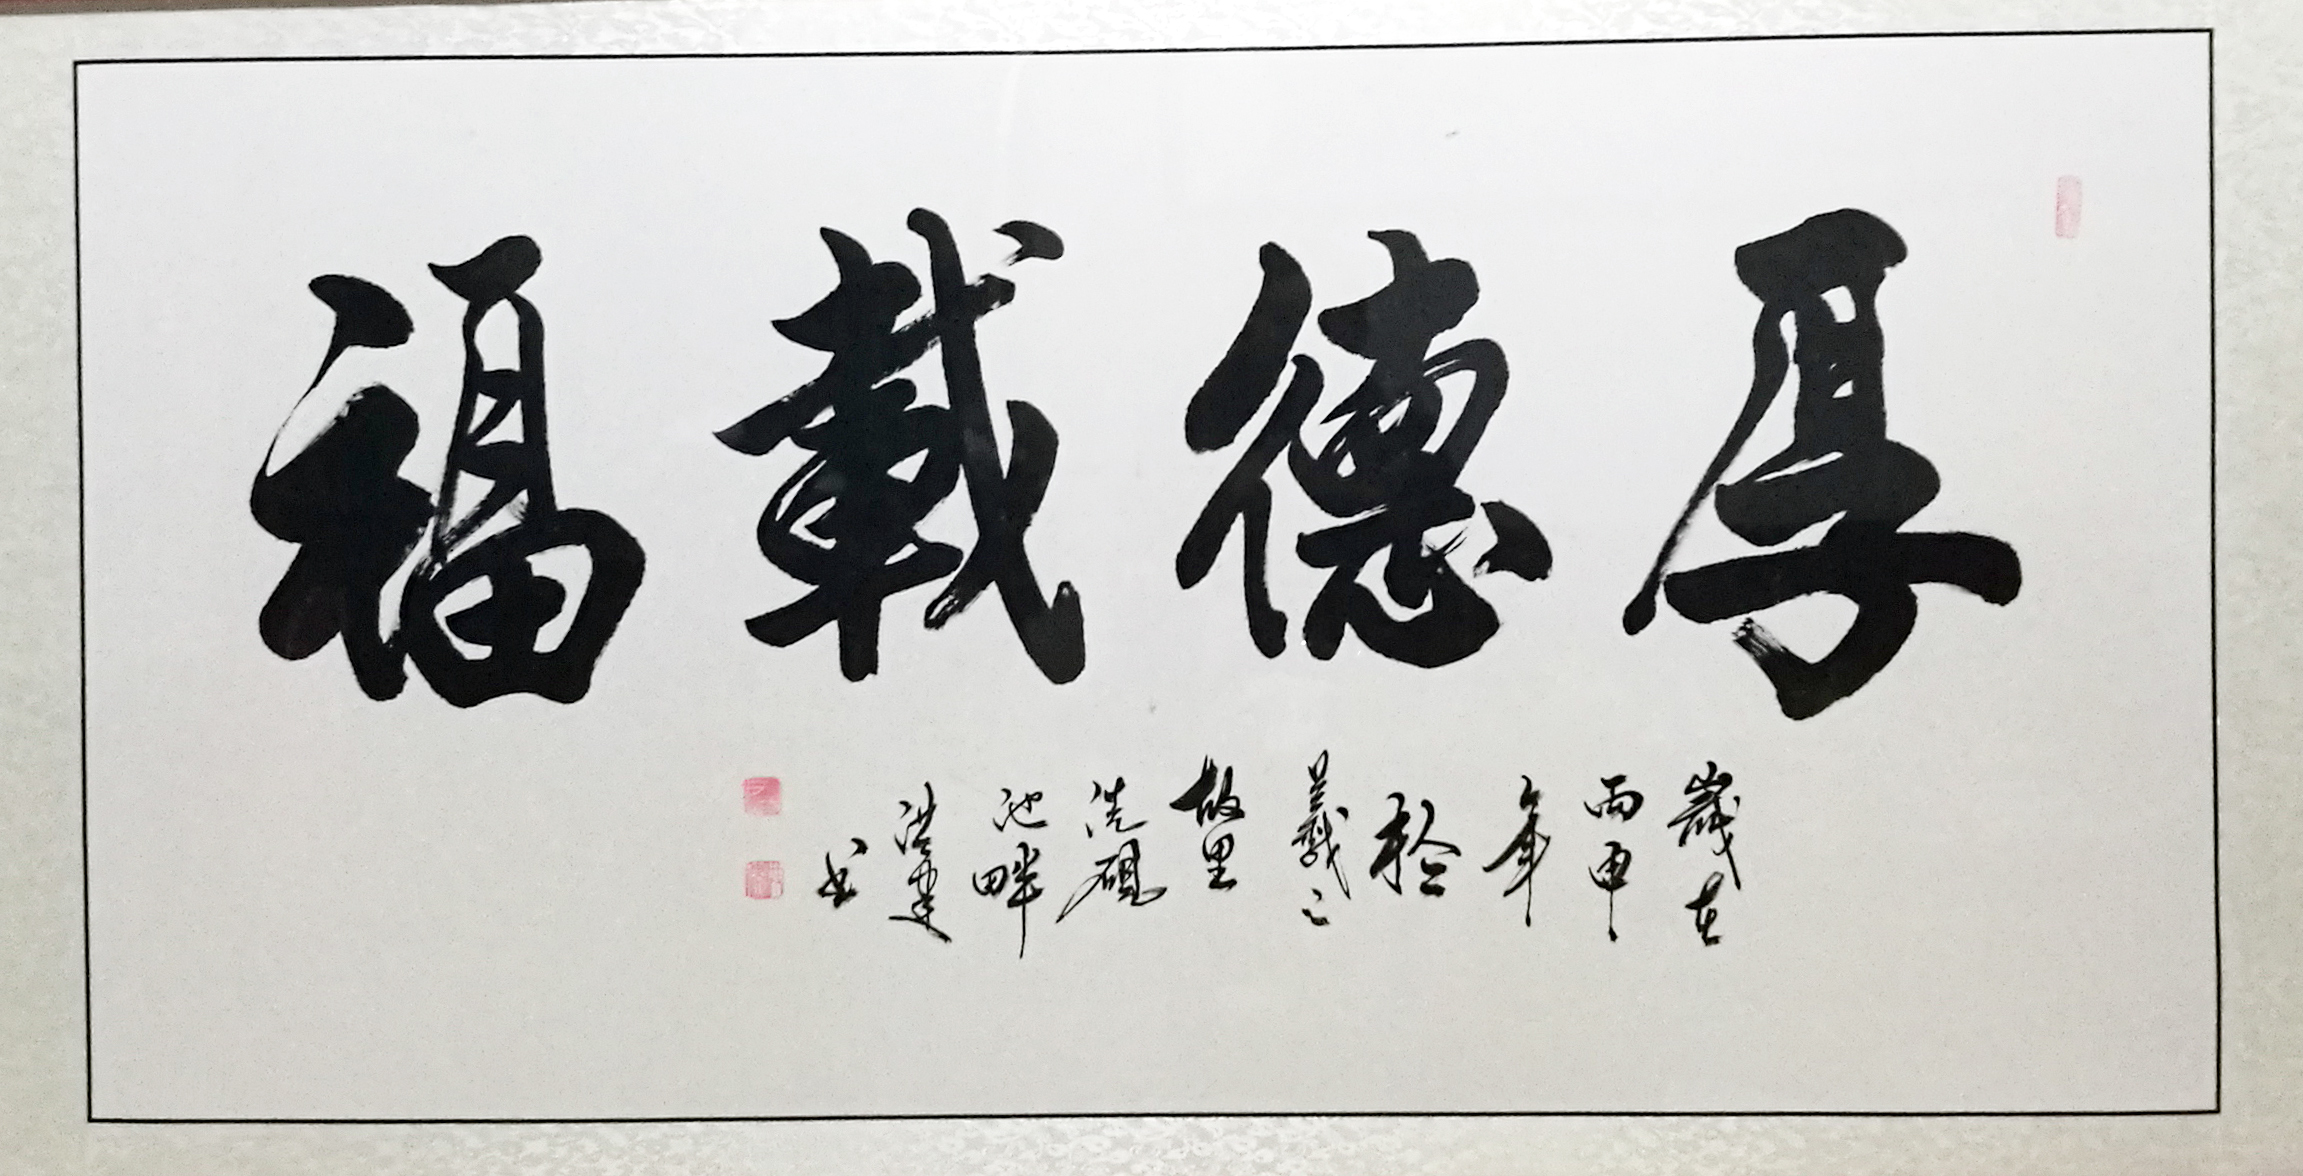 厚德載福
歲在
丙申
年
於
羲之
故里
洗硯
池畔
洪建
书